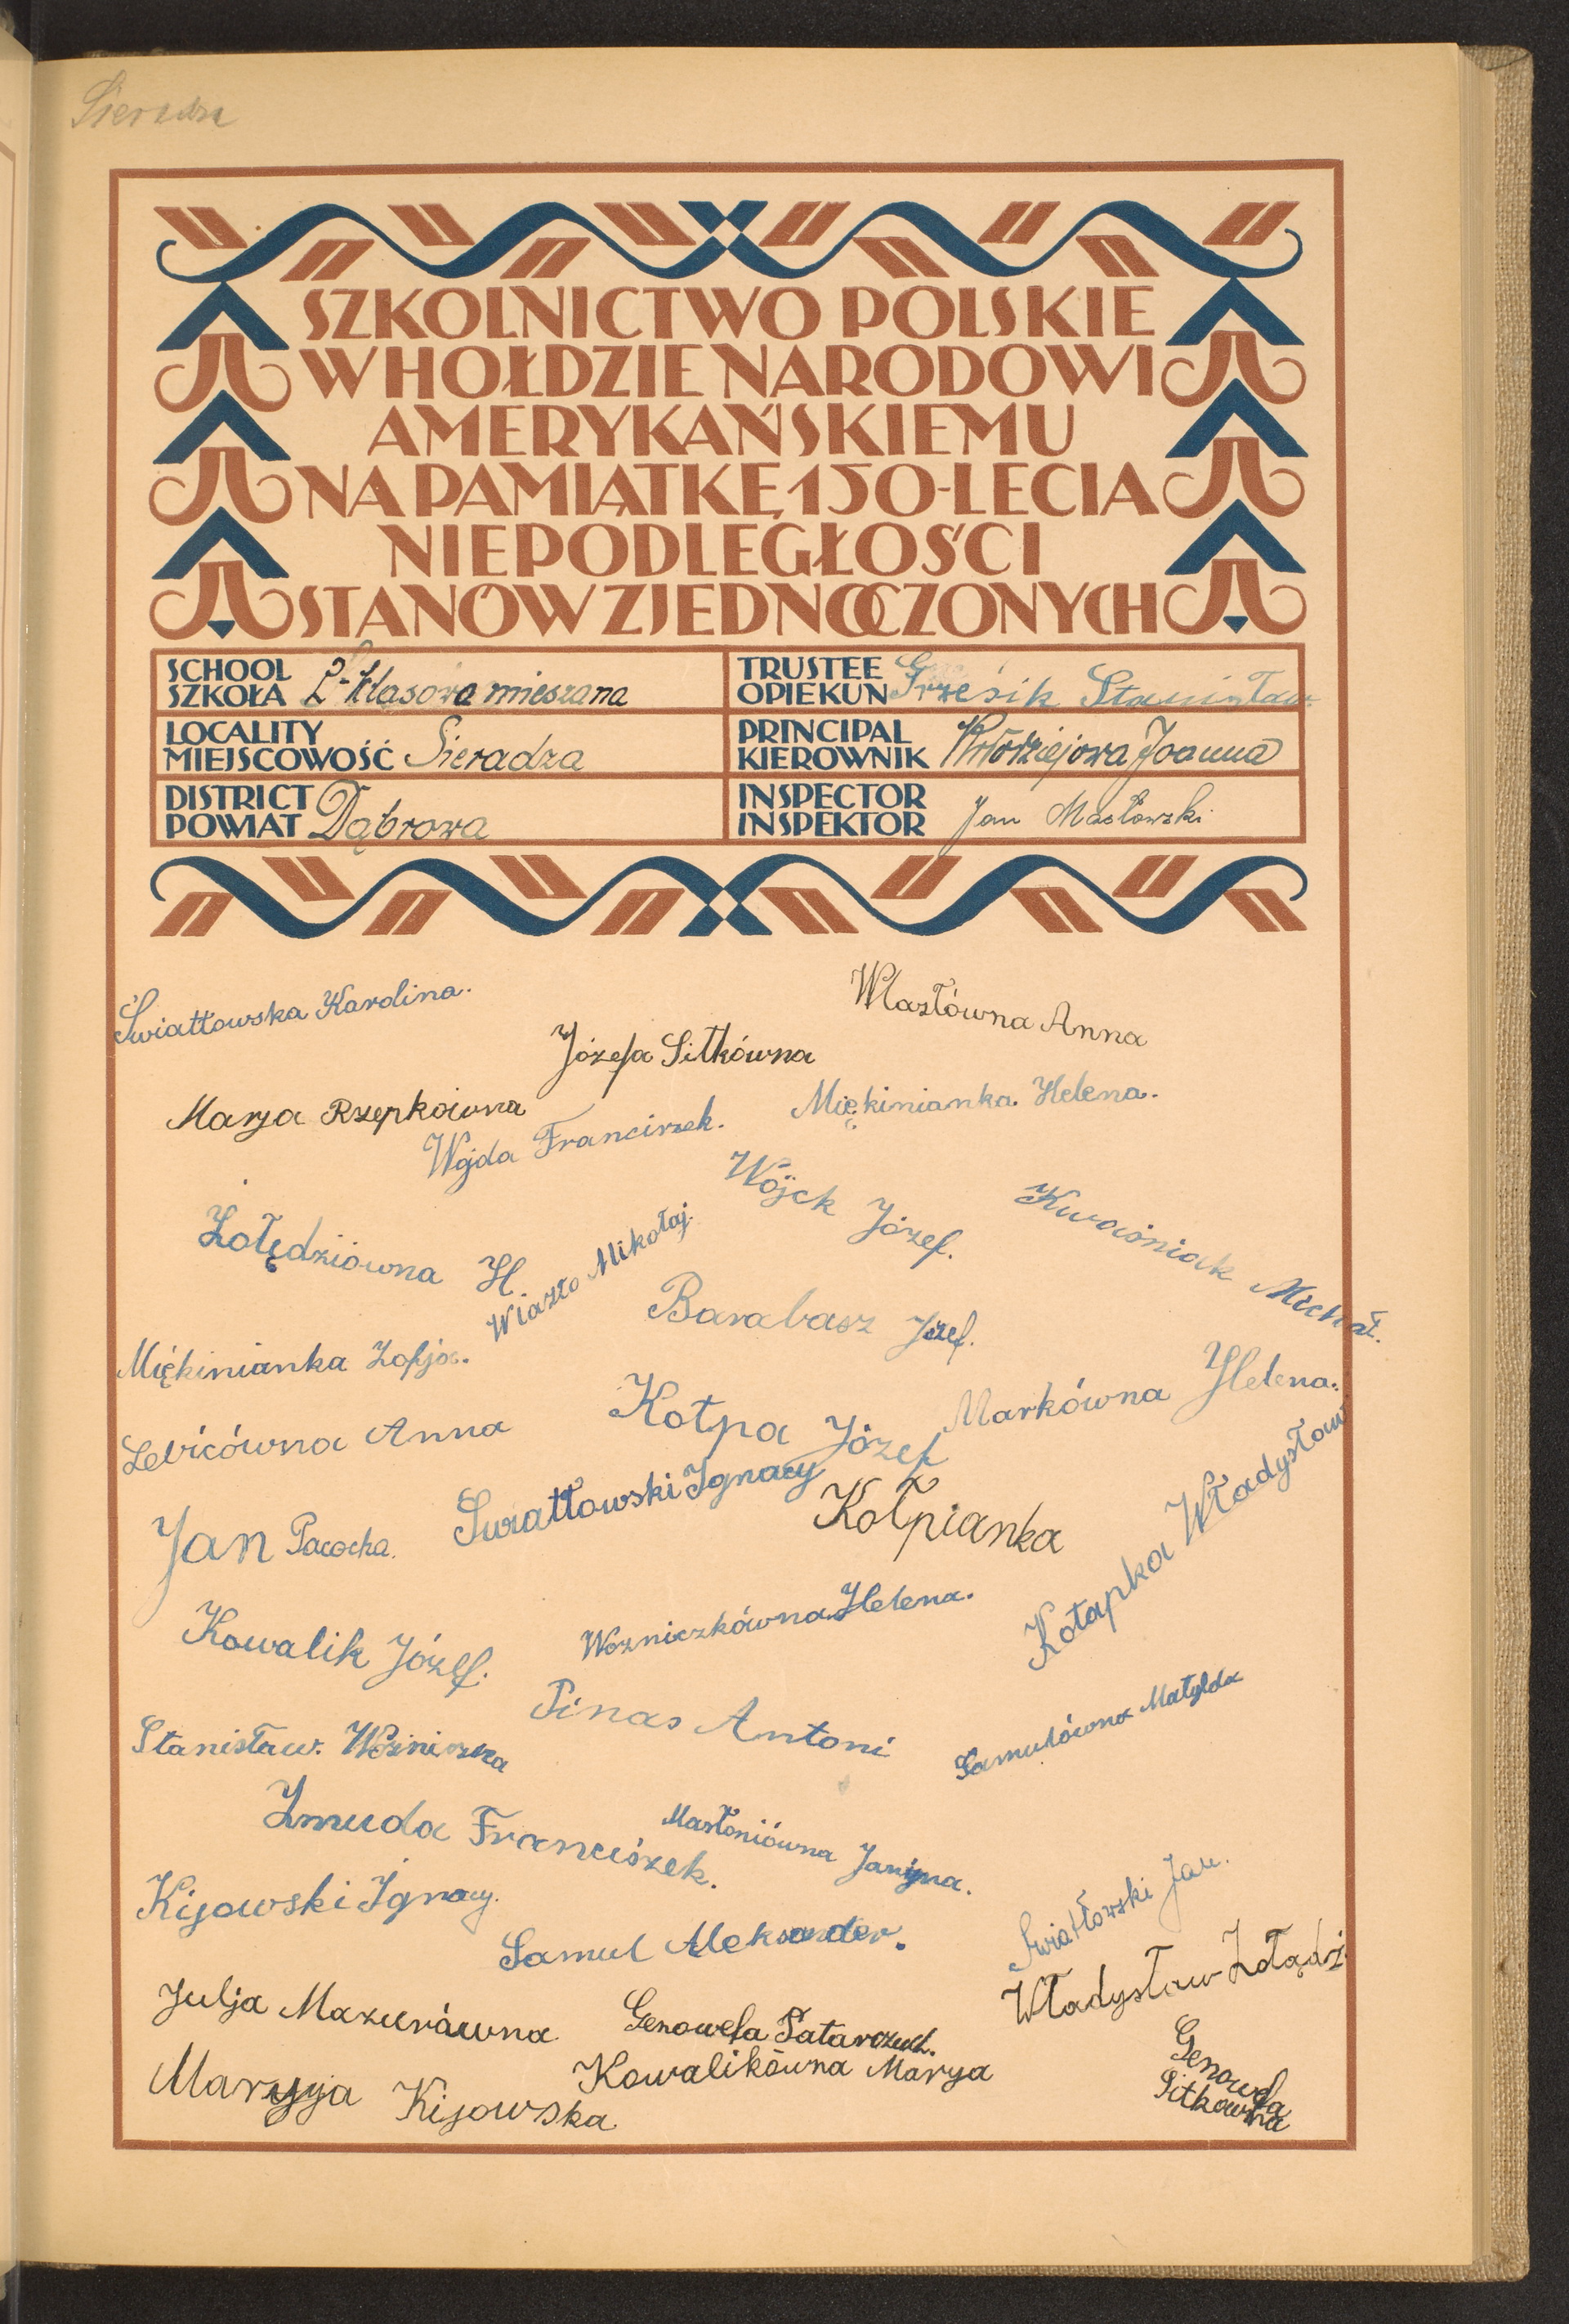 Sieradza
SZKOLNICTWO POLSKIE
W HOŁDZIE NARODOWI
AMERYKAŃSKIEMU
NA PAMIĄTKĘ 150-LECIA
NIEPODLEGŁOŚCI
STANÓW ZJEDNOCZONYCH
SCHOOL
SZKOŁA 2-klasowa mieszana
TRUSTEE
OPIEKUN Grzesik Stanisław.
LOCALITY
MIEJSCOWOŚĆ Sieradza
PRINCIPAL
KIEROWNIK Kołodziejowa Joanna
DISTRICT
POWIAT Dąbrowa
INSPECTOR
INSPEKTOR Jan Masłowski
Światłowska Karolina.
Wlazłówna Anna
Józefa Sitkówna
Marja Rzepkówna
Miękinianka Helena.
Wojda Franciszek.
Wójck Józef.
Kwaśniak Michał.
Żołędziówna H.
Wiazło Mikołaj.
Barabasz Józef.
Miękinianka Zofja.
Markówna Helena.
Kołpa Józef
Lewicówna Anna
Światłowski Ignacy
Kołpianka
Jan Pacocha.
Kołapka Władysław
Kowalik Józef.
Wozniczkówna Helena.
Pinas Antoni
Samulówna Matylda
Stanisław. Woźniczka
Zmuda Franciszek.
Masłoniówna Janina.
Kijowski Ignacy.
Światłowski Jan.
Samul Aleksander.
Władysław Żołądź
Julja Mazurówna
Genowefa Patarczuch.
Kowalikówna Marya
Genowefa
Sitkówna
Maryja Kijowska